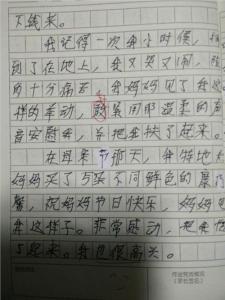 下线来。
我记得一次我小时候，
到了在地上，我又哭又闹，
的十分痛苦。我妈妈见了我
样的举动，用那温柔的声
音安慰我，并把我扶了起来。
在母亲节那天，我特地
妈妈买了5朵不同颜色的康乃
馨，祝妈妈节日快乐，妈妈
我这样子。非常感动，把我
了起来。我也很高兴。
作业完成情况
（家长签名）